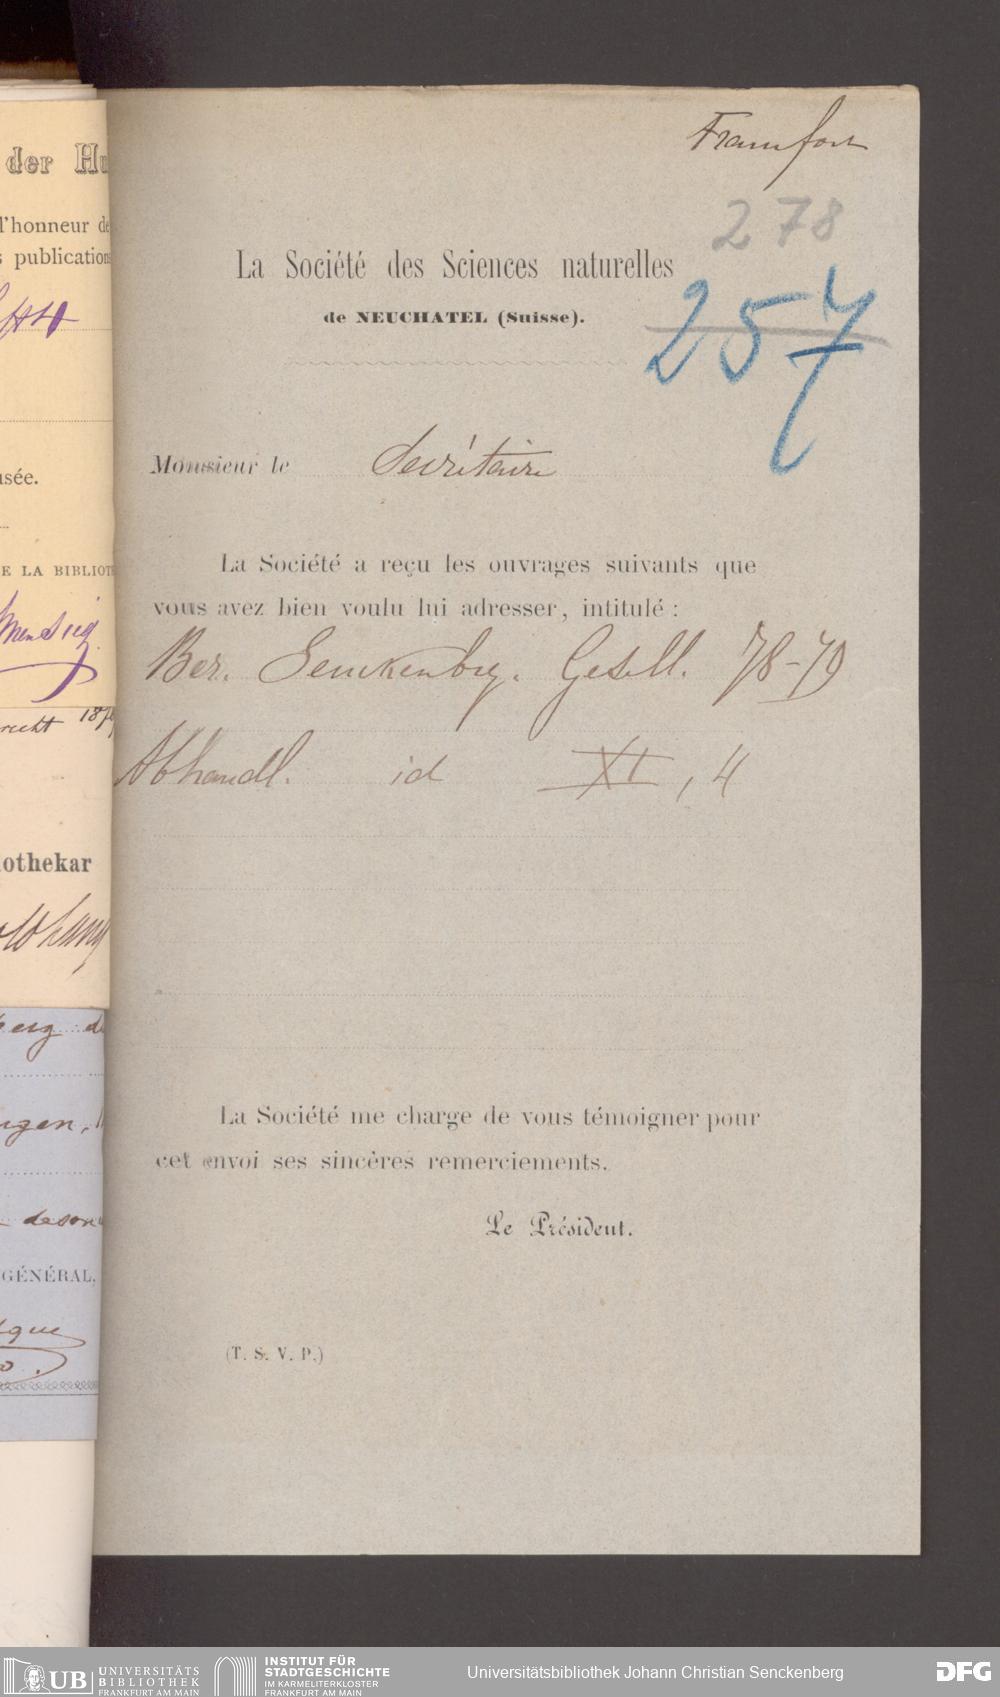 der Hu
l'honneur de
s publications
usée.
E LA BIBLIOT
recht 187
iothekar
berg de
ngen,
GÉNÉRAL,
Francfort
278
257
La Société des Sciences naturelles
de NEUCHATEL (Suisse).
Monsieur le Secrétaire
La Société a reçu les ouvrages suivants que
vous avez bien voulu lui adresser, intitulé :
Ber. Senckenbrg. Gesell. 78-79
Abhandl. id XI, 4
La Société me charge de vous témoigner pour
cet envoi ses sincères remerciements.
Le Président.
(T. S. V. P.)
UB UNIVERSITÄTS
BIBLIOTHEK
FRANKFURT AM MAIN
INSTITUT FÜR
STADTGESCHICHTE
IM KARMELITERKLOSTER
FRANKFURT AM MAIN
Universitätsbibliothek Johann Christian Senckenberg
DFG